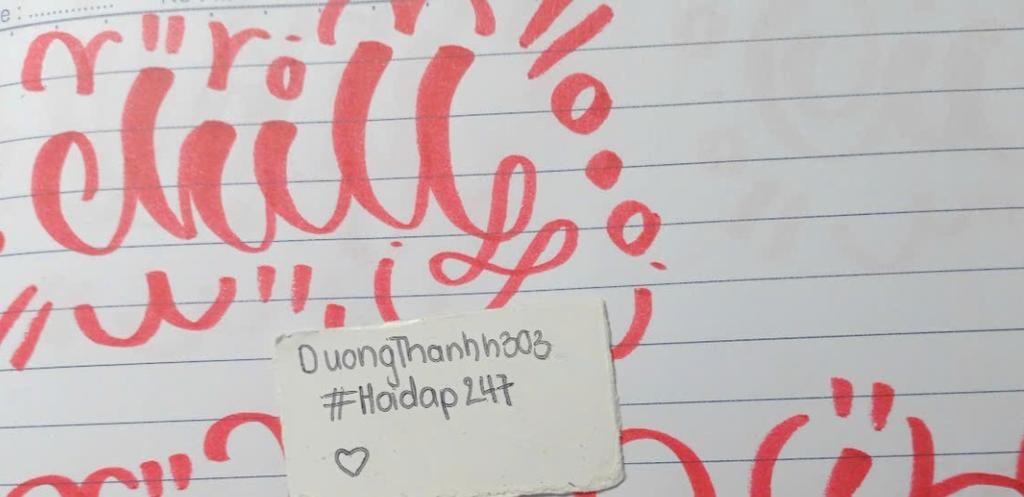 chill
DuongThanhh303
#Hoidap247